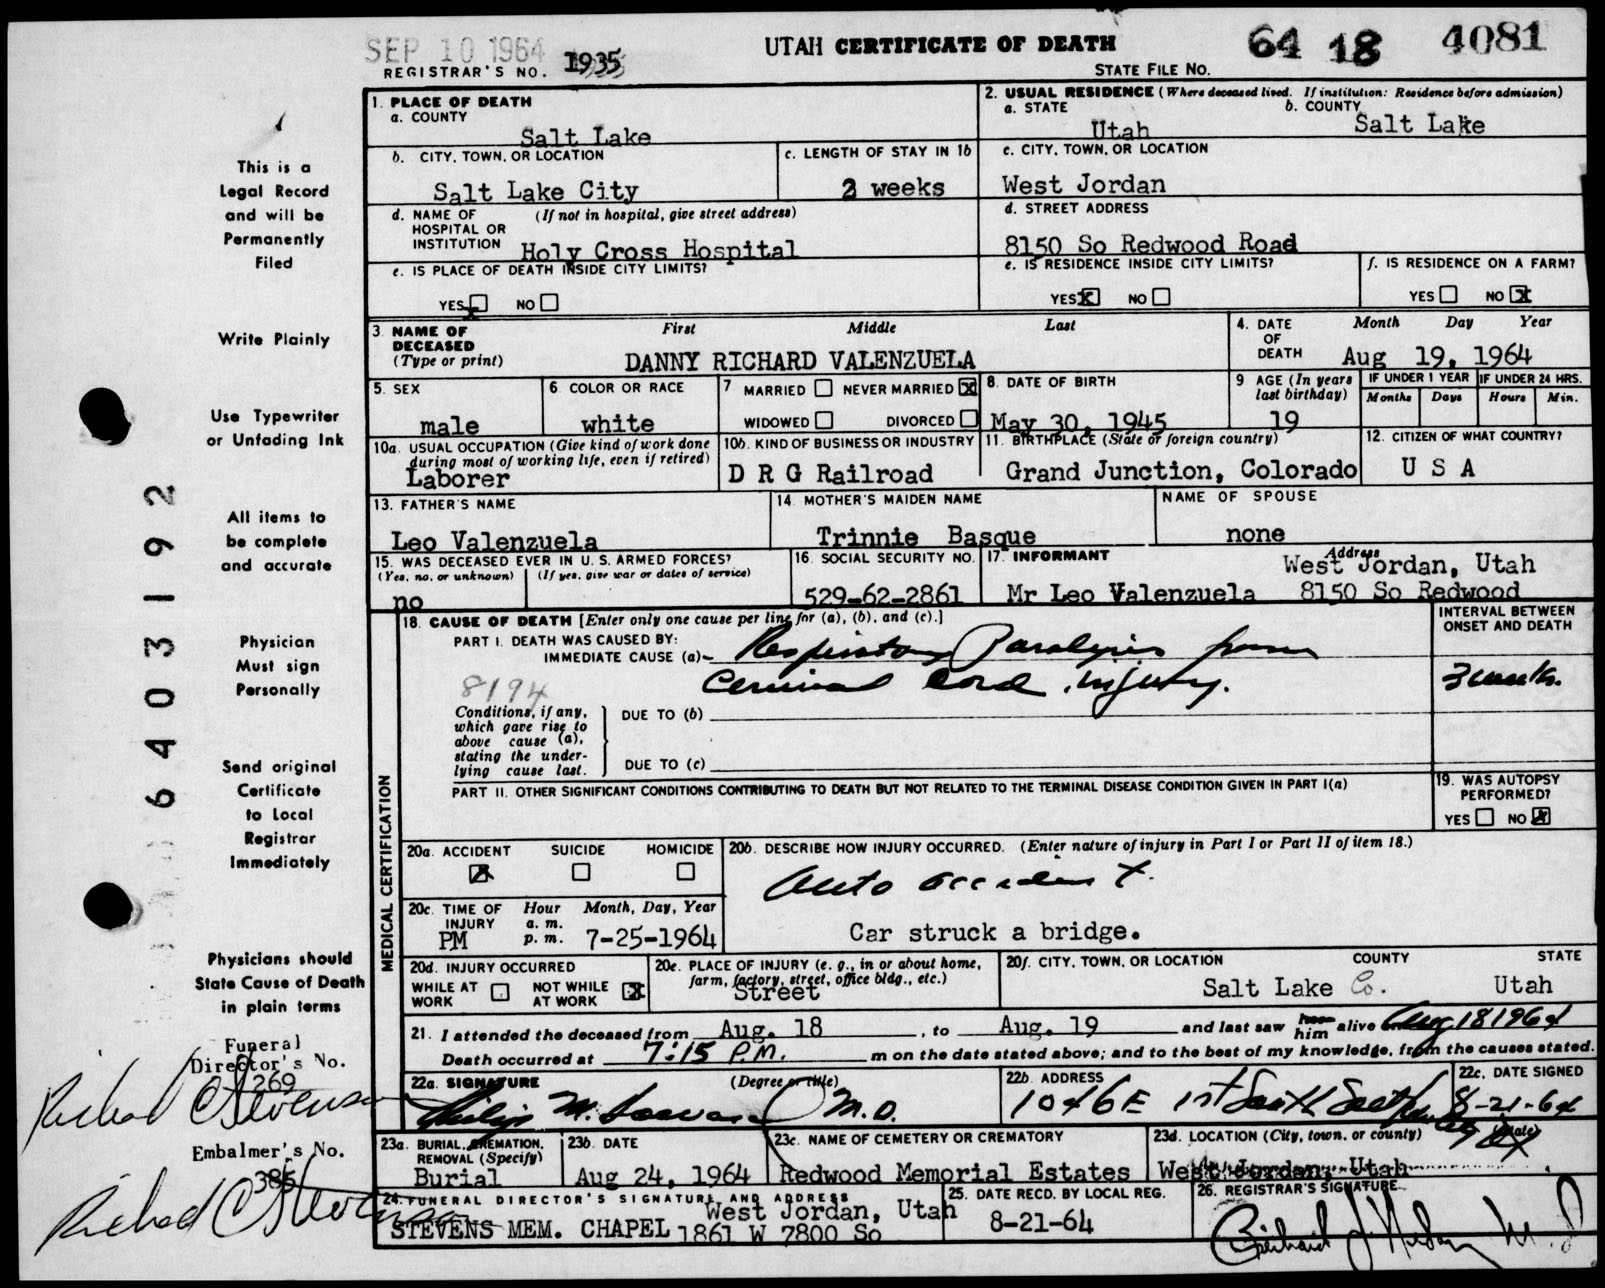 SEP 10 1964
REGISTRAR'S NO. 1935
UTAH CERTIFICATE OF DEATH
STATE FILE NO. 64 18 4081
This is a
Legal Record
and will be
Permanently
Filed
Write Plainly
Use Typewriter
or Unfading Ink
All items to
be complete
and accurate
Physician
Must sign
Personally
Send original
Certificate
to Local
Registrar
Immediately
Physicians should
State Cause of Death
in plain terms
Funeral
Director's No.
269
Richard C Stevenson
Embalmer's No.
385
Richard C Stevenson
6403192
1. PLACE OF DEATH
a. COUNTY
Salt Lake
2. USUAL RESIDENCE (Where deceased lived. If institution: Residence before admission)
a. STATE
Utah
b. COUNTY
Salt Lake
b. CITY, TOWN, OR LOCATION
Salt Lake City
c. LENGTH OF STAY IN 1b
weeks
c. CITY, TOWN, OR LOCATION
West Jordan
d. NAME OF HOSPITAL OR INSTITUTION (If not in hospital, give street address)
Holy Cross Hospital
d. STREET ADDRESS
8150 So Redwood Road
e. IS PLACE OF DEATH INSIDE CITY LIMITS?
YES X NO
e. IS RESIDENCE INSIDE CITY LIMITS?
YES X NO
f. IS RESIDENCE ON A FARM?
YES NO X
3. NAME OF DECEASED (Type or print)
First Middle Last
DANNY RICHARD VALENZUELA
4. DATE OF DEATH
Month Day Year
Aug 19, 1964
5. SEX
male
6 COLOR OR RACE
white
7 MARRIED NEVER MARRIED X
WIDOWED DIVORCED
8. DATE OF BIRTH
May 30, 1945
9 AGE (In years last birthday)
19
IF UNDER 1 YEAR
Months Days
IF UNDER 24 HRS.
Hours Min.
10a. USUAL OCCUPATION (Give kind of work done during most of working life, even if retired)
Laborer
10b. KIND OF BUSINESS OR INDUSTRY
D R G Railroad
11. BIRTHPLACE (State or foreign country)
Grand Junction, Colorado
12. CITIZEN OF WHAT COUNTRY?
U S A
13. FATHER'S NAME
Leo Valenzuela
14. MOTHER'S MAIDEN NAME
Trinnie Basque
NAME OF SPOUSE
none
15. WAS DECEASED EVER IN U. S. ARMED FORCES?
(Yes, no, or unknown) (If yes, give war or dates of service)
no
16. SOCIAL SECURITY NO.
529-62-2861
17. INFORMANT Address
West Jordan, Utah
Mr Leo Valenzuela 8150 So Redwood
MEDICAL CERTIFICATION
18. CAUSE OF DEATH [Enter only one cause per line for (a), (b), and (c).]
INTERVAL BETWEEN ONSET AND DEATH
PART I. DEATH WAS CAUSED BY:
IMMEDIATE CAUSE (a) Respiratory Paralysis from
Cervical Cord injury.
3 weeks.
8194
Conditions, if any, which gave rise to above cause (a), stating the underlying cause last.
DUE TO (b)
DUE TO (c)
PART II. OTHER SIGNIFICANT CONDITIONS CONTRIBUTING TO DEATH BUT NOT RELATED TO THE TERMINAL DISEASE CONDITION GIVEN IN PART I(a)
19. WAS AUTOPSY PERFORMED?
YES NO X
20a. ACCIDENT SUICIDE HOMICIDE
X
20b. DESCRIBE HOW INJURY OCCURRED. (Enter nature of injury in Part I or Part II of item 18.)
Auto accident.
Car struck a bridge.
20c. TIME OF INJURY
Hour Month, Day, Year
a. m.
p. m.
PM 7-25-1964
20d. INJURY OCCURRED
WHILE AT WORK NOT WHILE AT WORK X
20e. PLACE OF INJURY (e. g., in or about home, farm, factory, street, office bldg., etc.)
Street
20f. CITY, TOWN, OR LOCATION COUNTY STATE
Salt Lake Co. Utah
21. I attended the deceased from Aug. 18, to Aug. 19 and last saw her him alive on Aug 18 1964
Death occurred at 7:15 P.M. m on the date stated above; and to the best of my knowledge, from the causes stated.
22a. SIGNATURE (Degree or title)
M.D.
22b. ADDRESS
1046 E 1st South Salt Lake City
22c. DATE SIGNED
8-21-64
23a. BURIAL, CREMATION, REMOVAL (Specify)
Burial
23b. DATE
Aug 24, 1964
23c. NAME OF CEMETERY OR CREMATORY
Redwood Memorial Estates
23d. LOCATION (City, town, or county) (State)
West Jordan, Utah
24. FUNERAL DIRECTOR'S SIGNATURE AND ADDRESS
West Jordan, Utah
STEVENS MEM. CHAPEL 1861 W 7800 So
25. DATE RECD. BY LOCAL REG.
8-21-64
26. REGISTRAR'S SIGNATURE